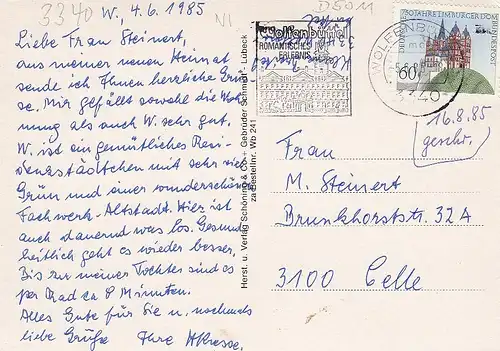 3340
W., 4.6.1985
VI
D5011
Liebe Frau Steinert,
aus meiner neuen Heimat
sende ich Ihnen herzliche Grü-
se. Mir gefällt sowohl die Woh-
nung als auch W. sehr gut.
W. ist ein gemütliches Resi-
denzstädtchen mit sehr viel
Grün und einer wunderschönen
Fachwerk-Altstadt. Hier ist
auch dauernd was los. Gesund-
heitlich geht es wieder besser.
Bis zu meiner Tochter sind es
per Rad ca 8 Minuten.
Alles Gute für Sie u. nochmals
liebe Grüße Ihre
Herst. u. Verlag Schöning & Co + Gebrüder Schmidt - Lübeck
zu Bestellnr. Wb 241
Wolfenbüttel
ROMANTISCHES
ERLEBNIS
WOLFENBÜ
3340
750 JAHRE LIMBURGER DOM
DEUTSCHE BUNDESPOST
60
16.8.85
geschr.
Frau
M. Steinert
Brunkhorststr. 32A
3100 Celle